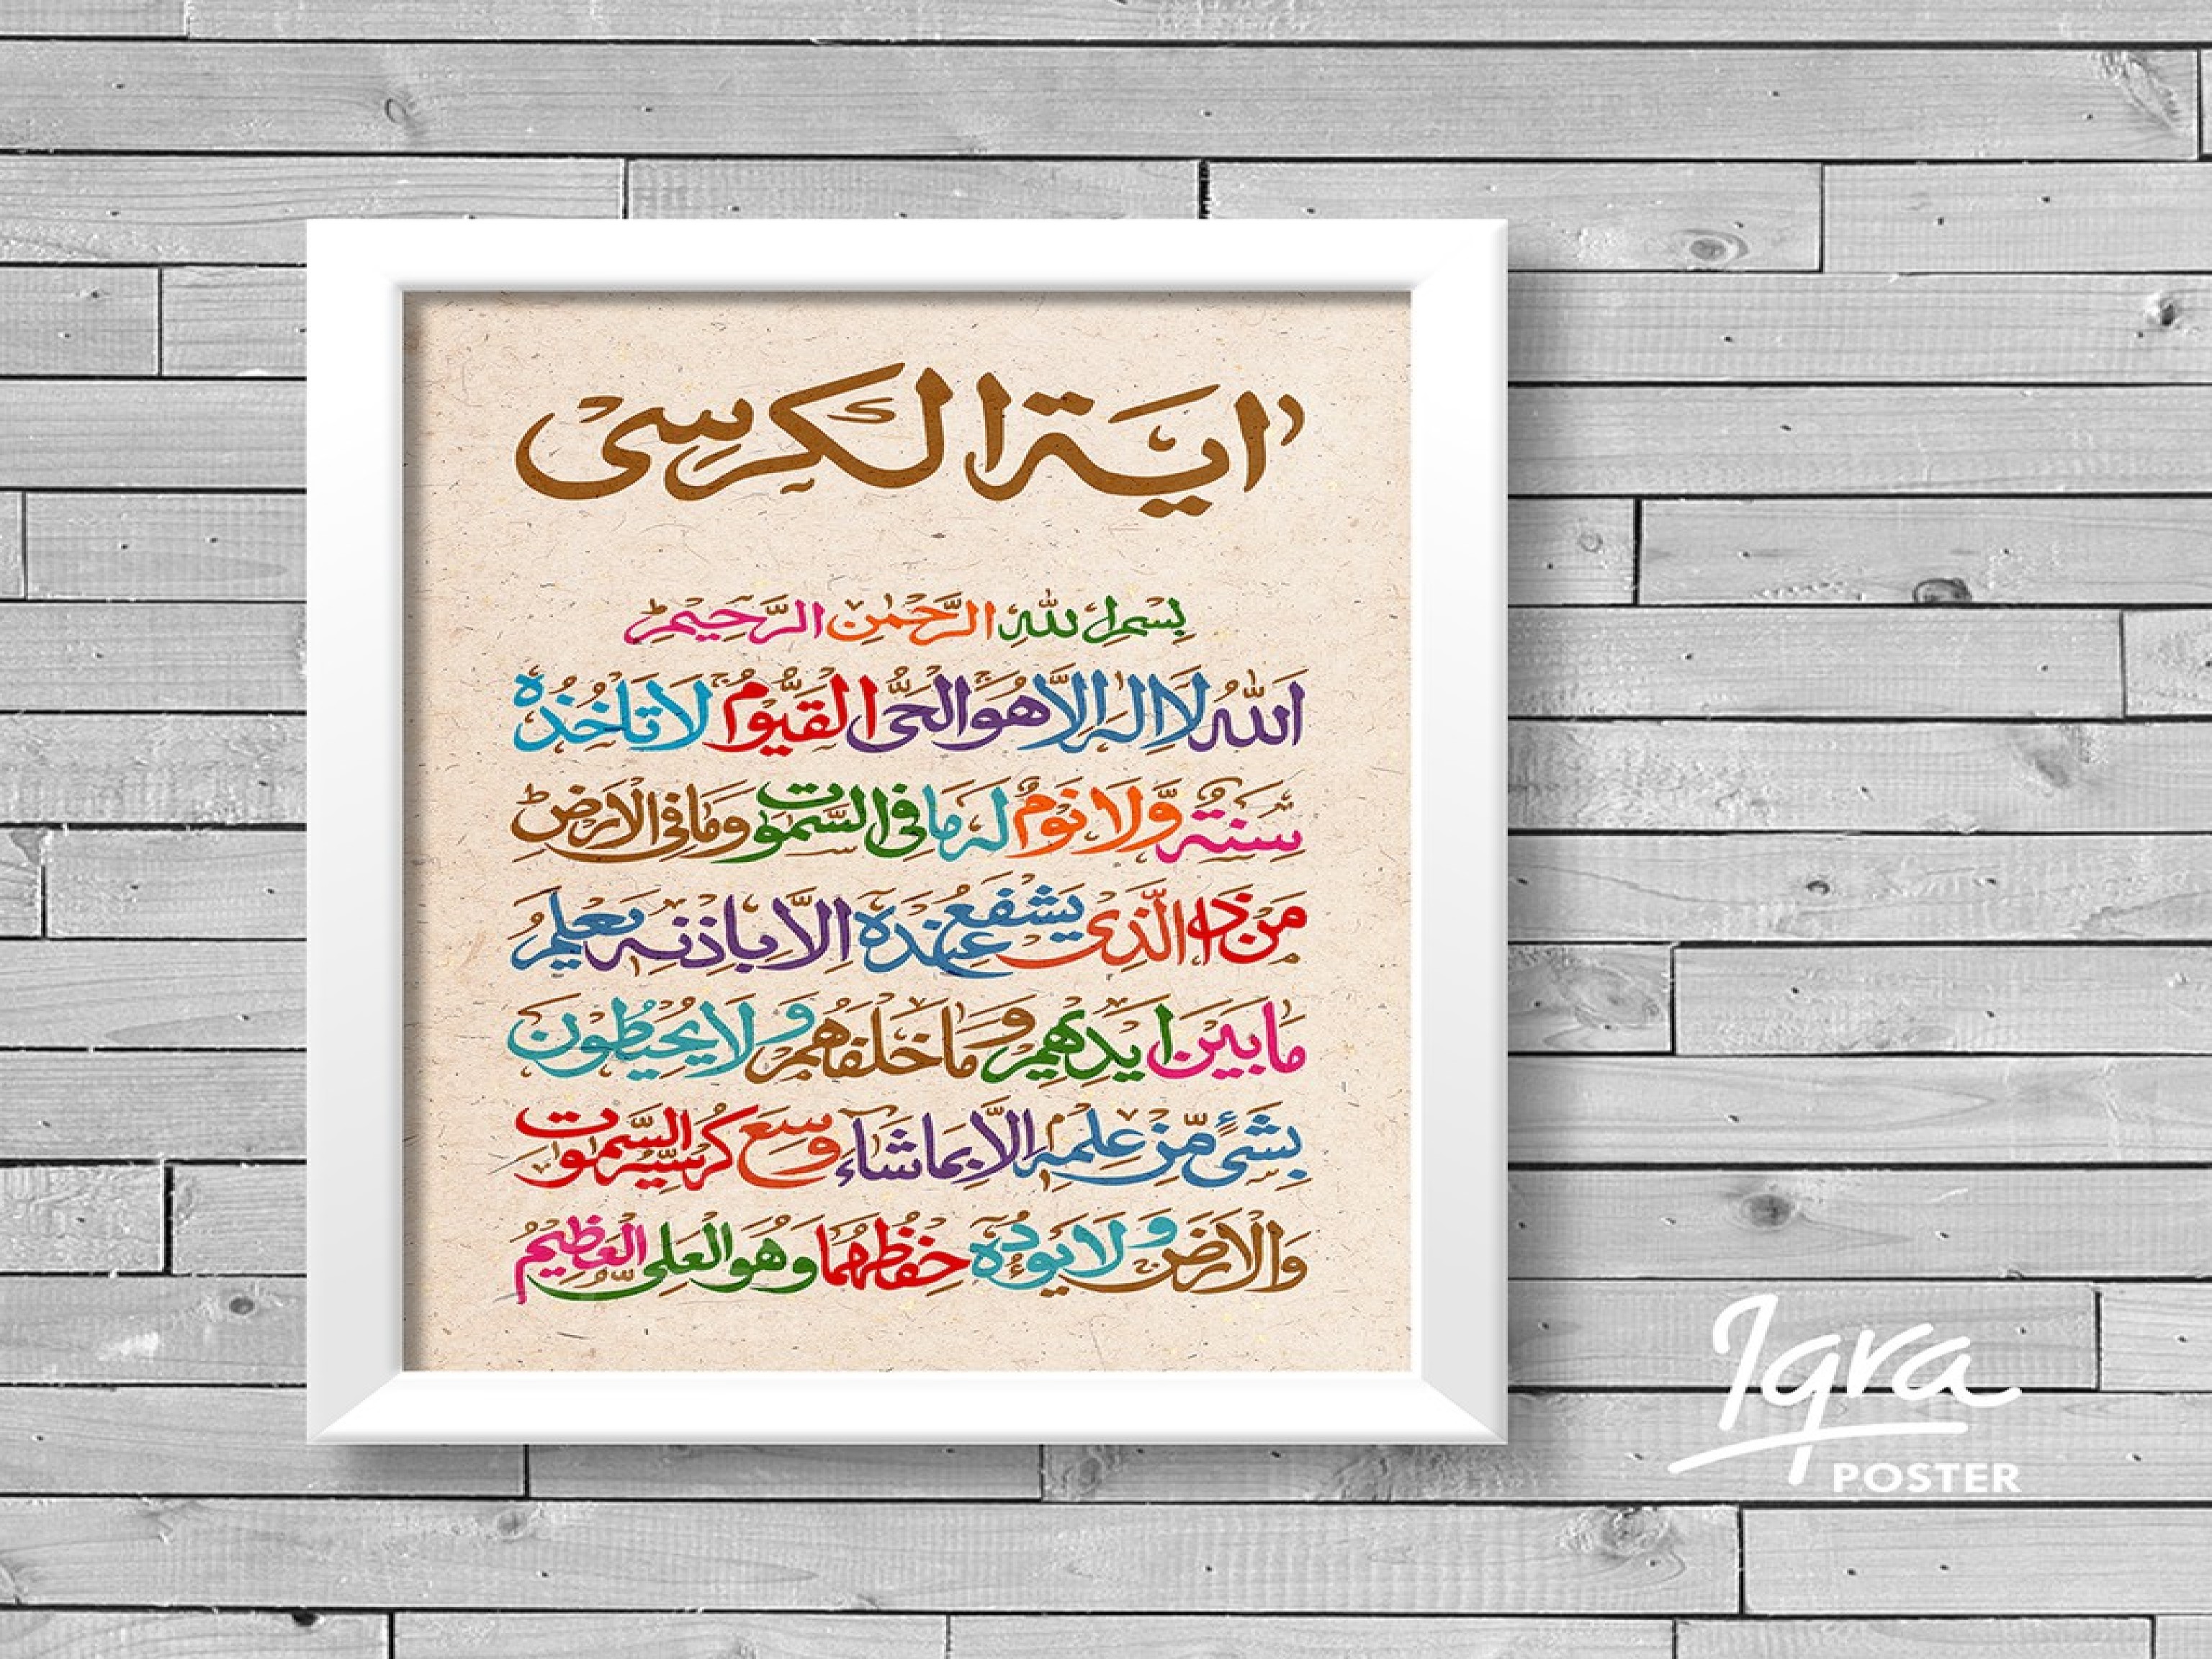 اٰیة الکرسی
بِسْمِ اللهِ الرَّحْمٰنِ الرَّحِیْمِ
اَللهُ لَا اِلٰهَ اِلَّا هُوَ اَلْحَیُّ الْقَیُّوْمُ لَا تَاْخُذُهٗ
سِنَةٌ وَّلَا نَوْمٌ لَهٗ مَا فِی السَّمٰوٰتِ وَمَا فِی الْاَرْضِ
مَنْ ذَا الَّذِیْ یَشْفَعُ عِنْدَهٗ اِلَّا بِاِذْنِهٖ یَعْلَمُ
مَا بَیْنَ اَیْدِیْهِمْ وَمَا خَلْفَهُمْ وَلَا یُحِیْطُوْنَ
بِشَیْءٍ مِّنْ عِلْمِهٖ اِلَّا بِمَا شَآءَ وَسِعَ کُرْسِیُّهُ السَّمٰوٰتِ
وَالْاَرْضَ وَلَا یَئُوْدُهٗ حِفْظُهُمَا وَهُوَ الْعَلِیُّ الْعَظِیْمُ
Iqra
POSTER